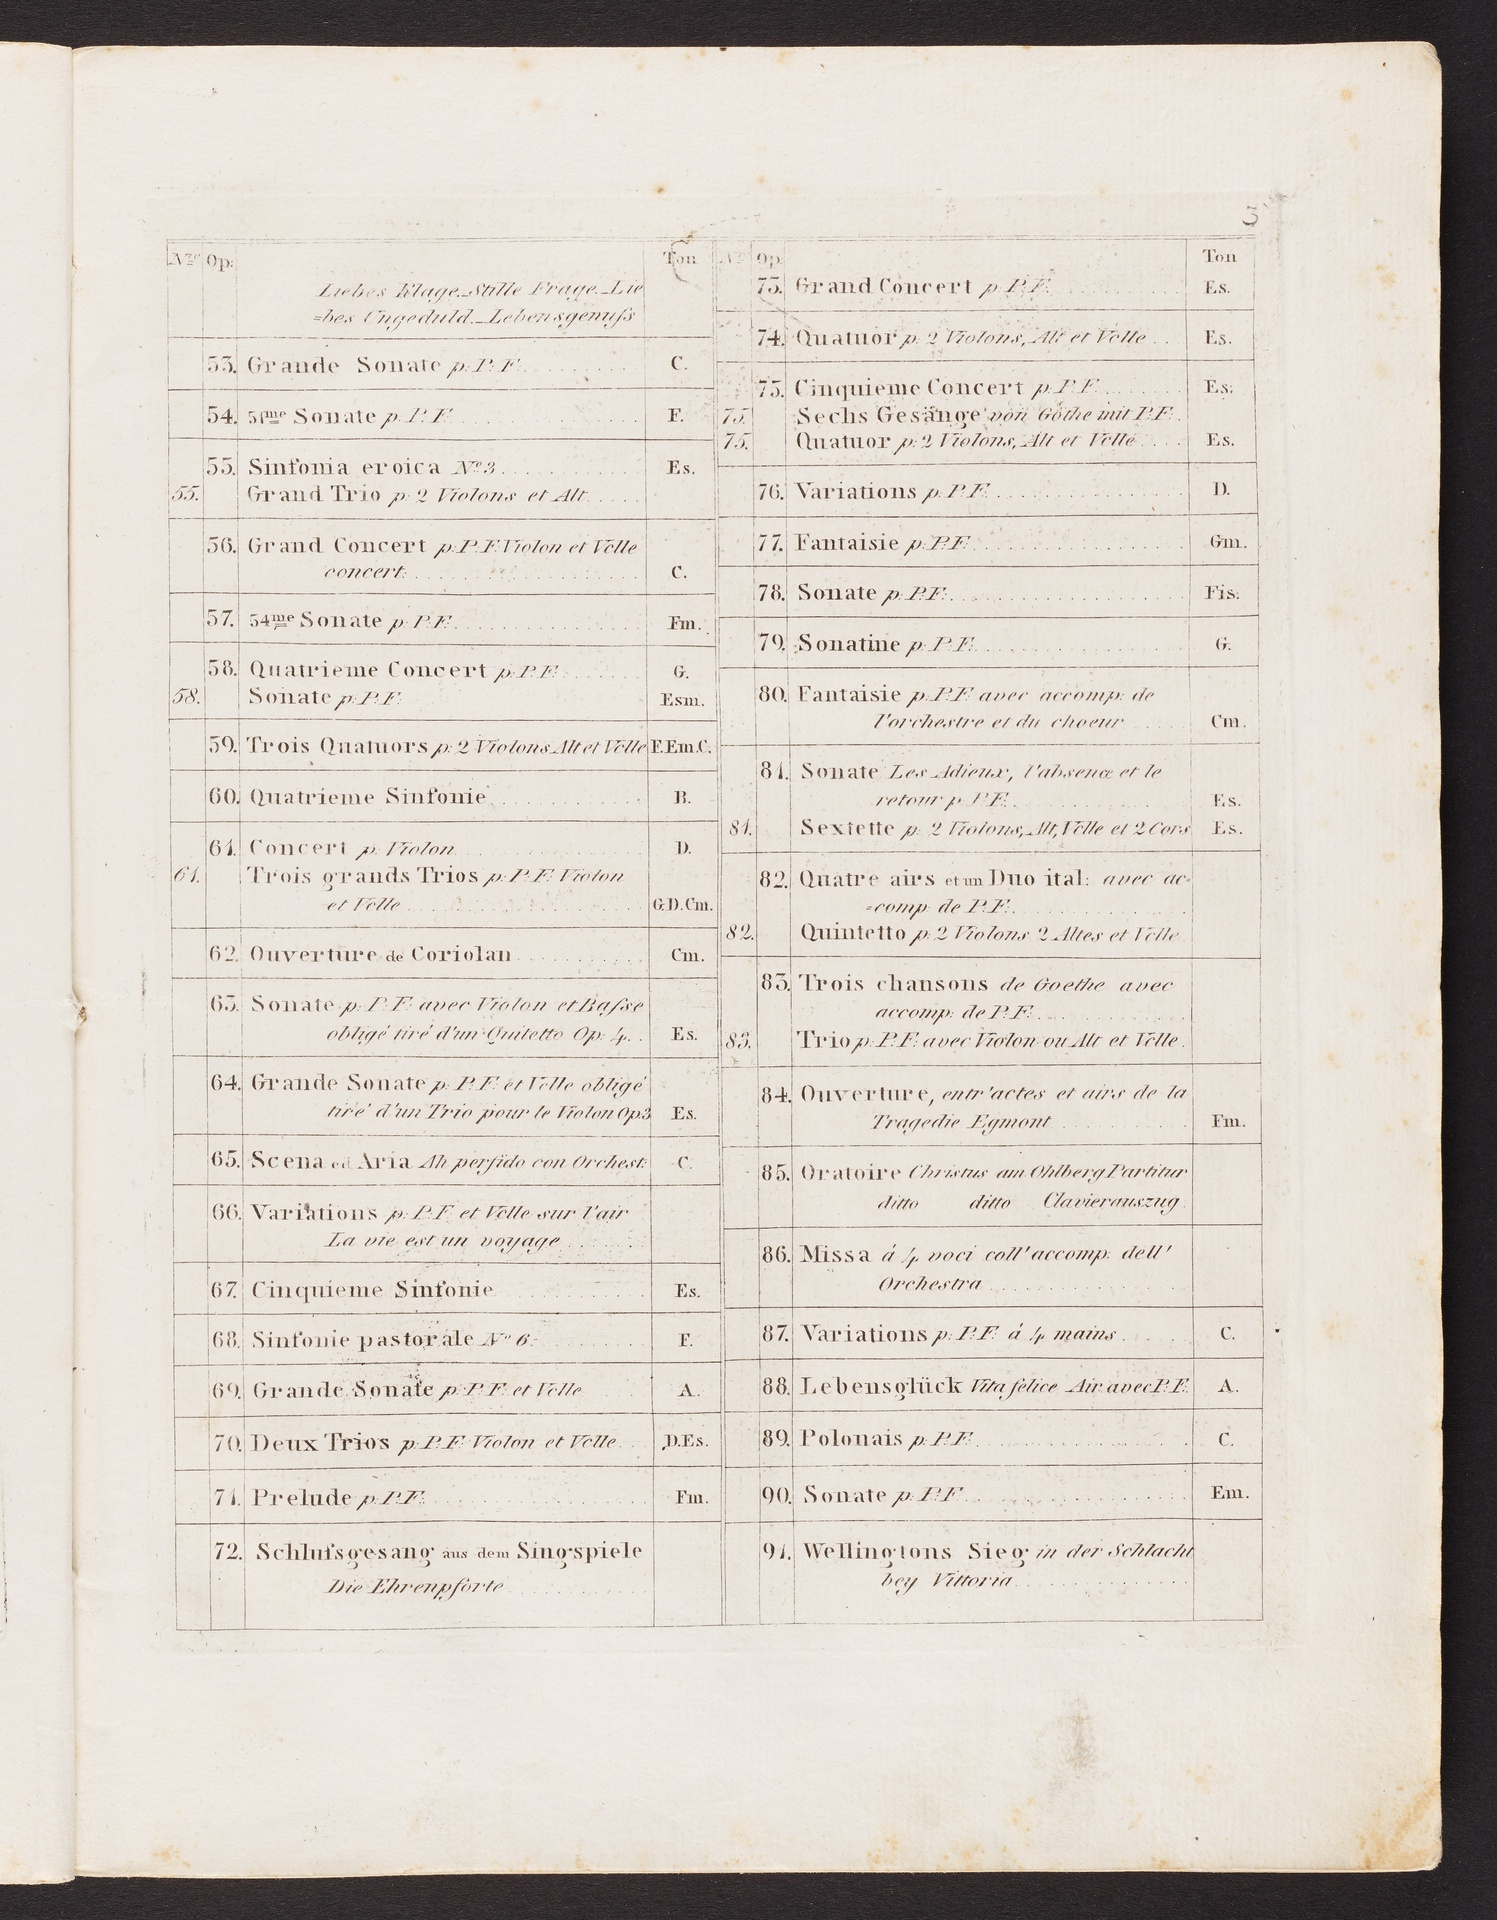 5
Nro Op: Ton
Liebes Klage._Stille Frage._Lie
=bes Ungeduld._Lebensgenuſs
53. Grande Sonate p. P. F. C.
54. 51me Sonate p. P. F. F.
55. Sinfonia eroica No 3 Es.
55. Grand Trio p. 2 Violons et Alt
56. Grand Concert p. P. F. Violon et Vclle
concert: C.
57. 54me Sonate p. P. F. Fm.
58. Quatrieme Concert p. P. F. G.
58. Sonate p. P. F. Esm.
59. Trois Quatuors p. 2 Violons Alt et Vclle F. Em. C.
60. Quatrieme Sinfonie B.
61. Concert p. Violon D.
61. Trois grands Trios p. P. F. Violon
et Vclle G. D. Cm.
62. Ouverture de Coriolan Cm.
63. Sonate p. P. F. avec Violon et Baſse
obligé tiré d'un Quitetto Op: 4. Es.
64. Grande Sonate p. P. F. et Vclle obligé
tiré d'un Trio pour le Violon Op3 Es.
65. Scena ed Aria Ah perfido con Orchest: C.
66. Variations p. P. F. et Vclle sur l'air
La vie est un voyage
67. Cinquieme Sinfonie Es.
68. Sinfonie pastorale No 6. F.
69. Grande Sonate p. P. F. et Vclle A.
70. Deux Trios p. P. F. Violon et Vclle D. Es.
71. Prelude p. P. F. Fm.
72. Schluſsgesang aus dem Singspiele
Die Ehrenpforte
Nro Op: Ton
73. Grand Concert p. P. F. Es.
74. Quatuor p. 2 Violons, Alt et Vclle Es.
75. Cinquieme Concert p. P. F. Es.
75. Sechs Gesänge von Göthe mit P. F.
75. Quatuor p. 2 Violons, Alt et Vclle Es.
76. Variations p. P. F. D.
77. Fantaisie p. P. F. Gm.
78. Sonate p. P. F. Fis.
79. Sonatine p. P. F. G.
80. Fantaisie p. P. F. avec accomp: de
l'orchestre et du choeur Cm.
81. Sonate Les Adieux, l'absence et le
retour p. P. F. Es.
81. Sextette p. 2 Violons, Alt, Vclle et 2 Cors Es.
82. Quatre airs et un Duo ital: avec ac=
=comp: de P. F.
82. Quintetto p. 2 Violons 2 Altes et Vclle
83. Trois chansons de Goethe avec
accomp: de P. F.
83. Trio p. P. F. avec Violon ou Alt et Vclle.
84. Ouverture, entr'actes et airs de la
Tragedie Egmont Fm.
85. Oratoire Christus am Ohlberg Partitur
ditto ditto Clavierauszug
86. Missa á 4 voci coll' accomp: dell'
Orchestra
87. Variations p. P. F. á 4 mains C.
88. Lebensglück Vita felice Air avec P. F. A.
89. Polonais p. P. F. C.
90. Sonate p. P. F. Em.
91. Wellingtons Sieg in der Schlacht
bey Vittoria